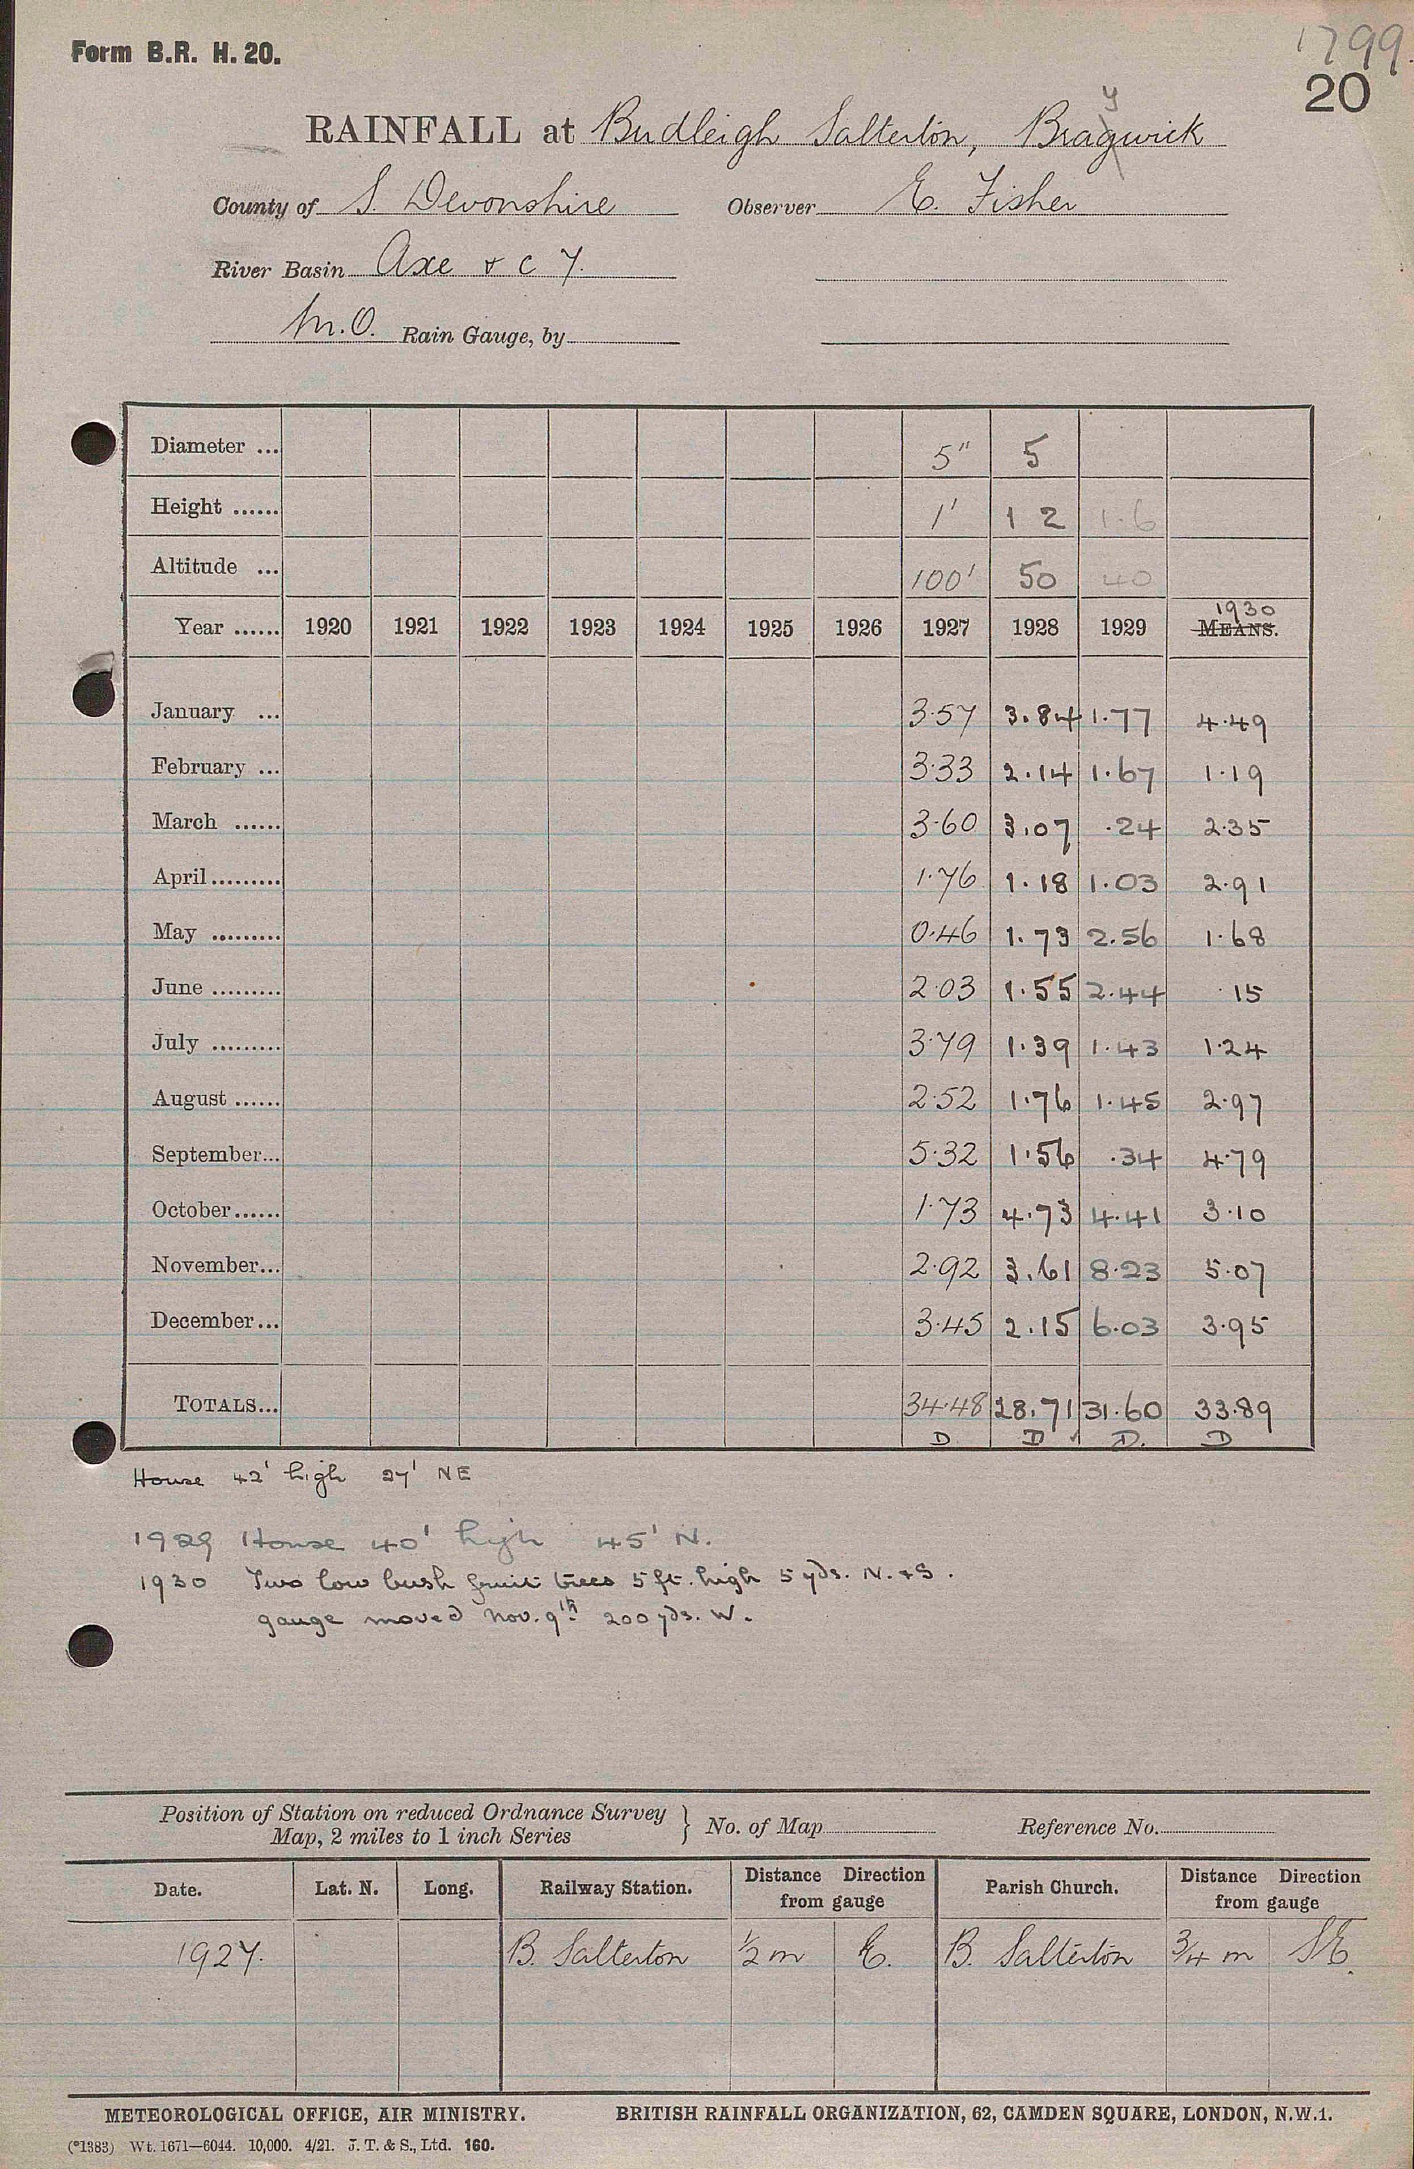 Form B.R. H. 20.
1799.
20
RAINFALL at Budleigh Salterton, Bragwick
y
County of S. Devonshire Observer E. Fisher
River Basin Axe & c 7.
M.O. Rain Gauge, by
Diameter ... 5" 5
Height ...... 1' 1 2 1.6
Altitude ... 100' 50 40
1930
Year ...... 1920 1921 1922 1923 1924 1925 1926 1927 1928 1929 MEANS.
January ... 3.57 3.84 1.77 4.49
February ... 3.33 2.14 1.67 1.19
March ...... 3.60 3.07 .24 2.35
April ......... 1.76 1.18 1.03 2.91
May ......... 0.46 1.73 2.56 1.68
June ......... 2.03 1.55 2.44 .15
July ......... 3.79 1.39 1.43 1.24
August ...... 2.52 1.76 1.45 2.97
September... 5.32 1.56 .34 4.79
October ...... 1.73 4.73 4.41 3.10
November... 2.92 3.61 8.23 5.07
December ... 3.45 2.15 6.03 3.95
TOTALS... 34.48 28.71 31.60 33.89
D D D. D
House 42' high 27' NE
1929 House 40' high 45' N.
1930 Two low bush fruit trees 5 ft. high 5 yds. N. & S.
gauge moved Nov. 9th 200 yds. W.
Position of Station on reduced Ordnance Survey
Map, 2 miles to 1 inch Series } No. of Map Reference No.
Date. Lat. N. Long. Railway Station. Distance Direction from gauge Parish Church. Distance Direction from gauge
1927. B. Salterton 1/2 m E. B. Salterton 3/4 m SE.
METEOROLOGICAL OFFICE, AIR MINISTRY. BRITISH RAINFALL ORGANIZATION, 62, CAMDEN SQUARE, LONDON, N.W.1.
(*1383) Wt. 1671—6044. 10,000. 4/21. J. T. & S., Ltd. 160.